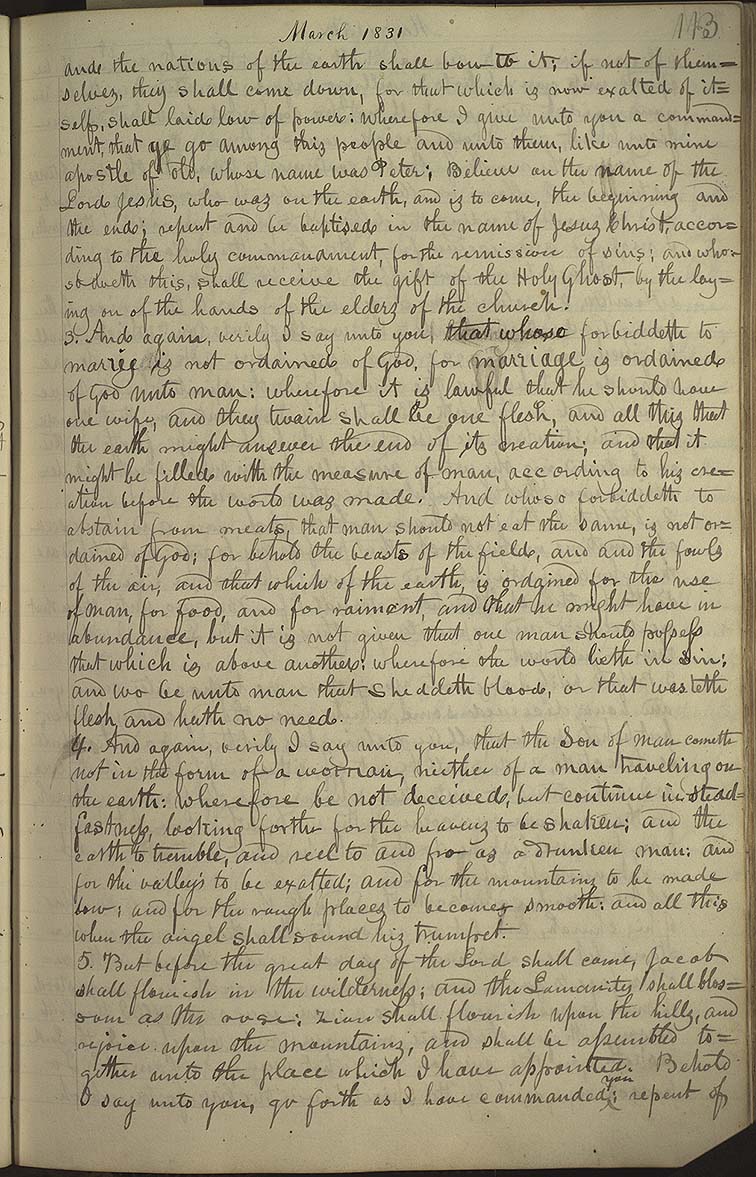 March 1831
113
and the nations of the earth shall bow to it; if not of them=
selves, they shall come down, for that which is now exalted of it=
self, shall laid low of power: wherefore I give unto you a command=
ment, that ye go among this people and unto them, like unto mine
apostle of old, whose name was Peter; Believe on the name of the
Lord Jesus, who was on the earth, and is to come, the beginning and
the end; repent and be baptised in the name of Jesus Christ, accor=
ding to the holy commandment, for the remission of sins; and who=
so doeth this, shall receive the gift of the Holy Ghost, by the lay=
ing on of the hands of the elders of the church.
3. And again, verily I say unto you, that whoso forbiddeth to
marry is not ordained of God, for marriage is ordained
of God unto man: wherefore it is lawful that he should have
one wife, and they twain shall be one flesh, and all this that
the earth might answer the end of its creation; and that it
might be filled with the measure of man, according to his cre=
ation before the world was made. And whoso forbiddeth to
abstain from meats, that man should not eat the same, is not or=
dained of God; for behold the beasts of the field, and and the fowls
of the air, and that which of the earth, is ordained for the use
of man, for food, and for raiment, and that he might have in
abundance, but it is not given that one man should possess
that which is above another: wherefore the world lieth in sin;
and wo be unto man that sheddeth blood, or that wasteth
flesh, and hath no need.
4. And again, verily I say unto you, that the Son of man cometh
not in the form of a woman, neither of a man traveling on
the earth: wherefore be not deceived, but continue in stead=
fastness, looking forth for the heavens to be shaken; and the
earth to tremble, and reel to and fro as a drunken man: and
for the valleys to be exalted; and for the mountains to be made
low; and for the rough places to become smooth: and all this
when the angel shall sound his trumpet.
5. But before the great day of the Lord shall come, Jacob
shall flourish in the wilderness; and the Lamanites shall blos=
som as the rose; Zion shall flourish upon the hills, and
rejoice upon the mountains, and shall be assembled to=
gether unto the place which I have appointed. Behold
I say unto you, go forth as I have commanded you; repent of